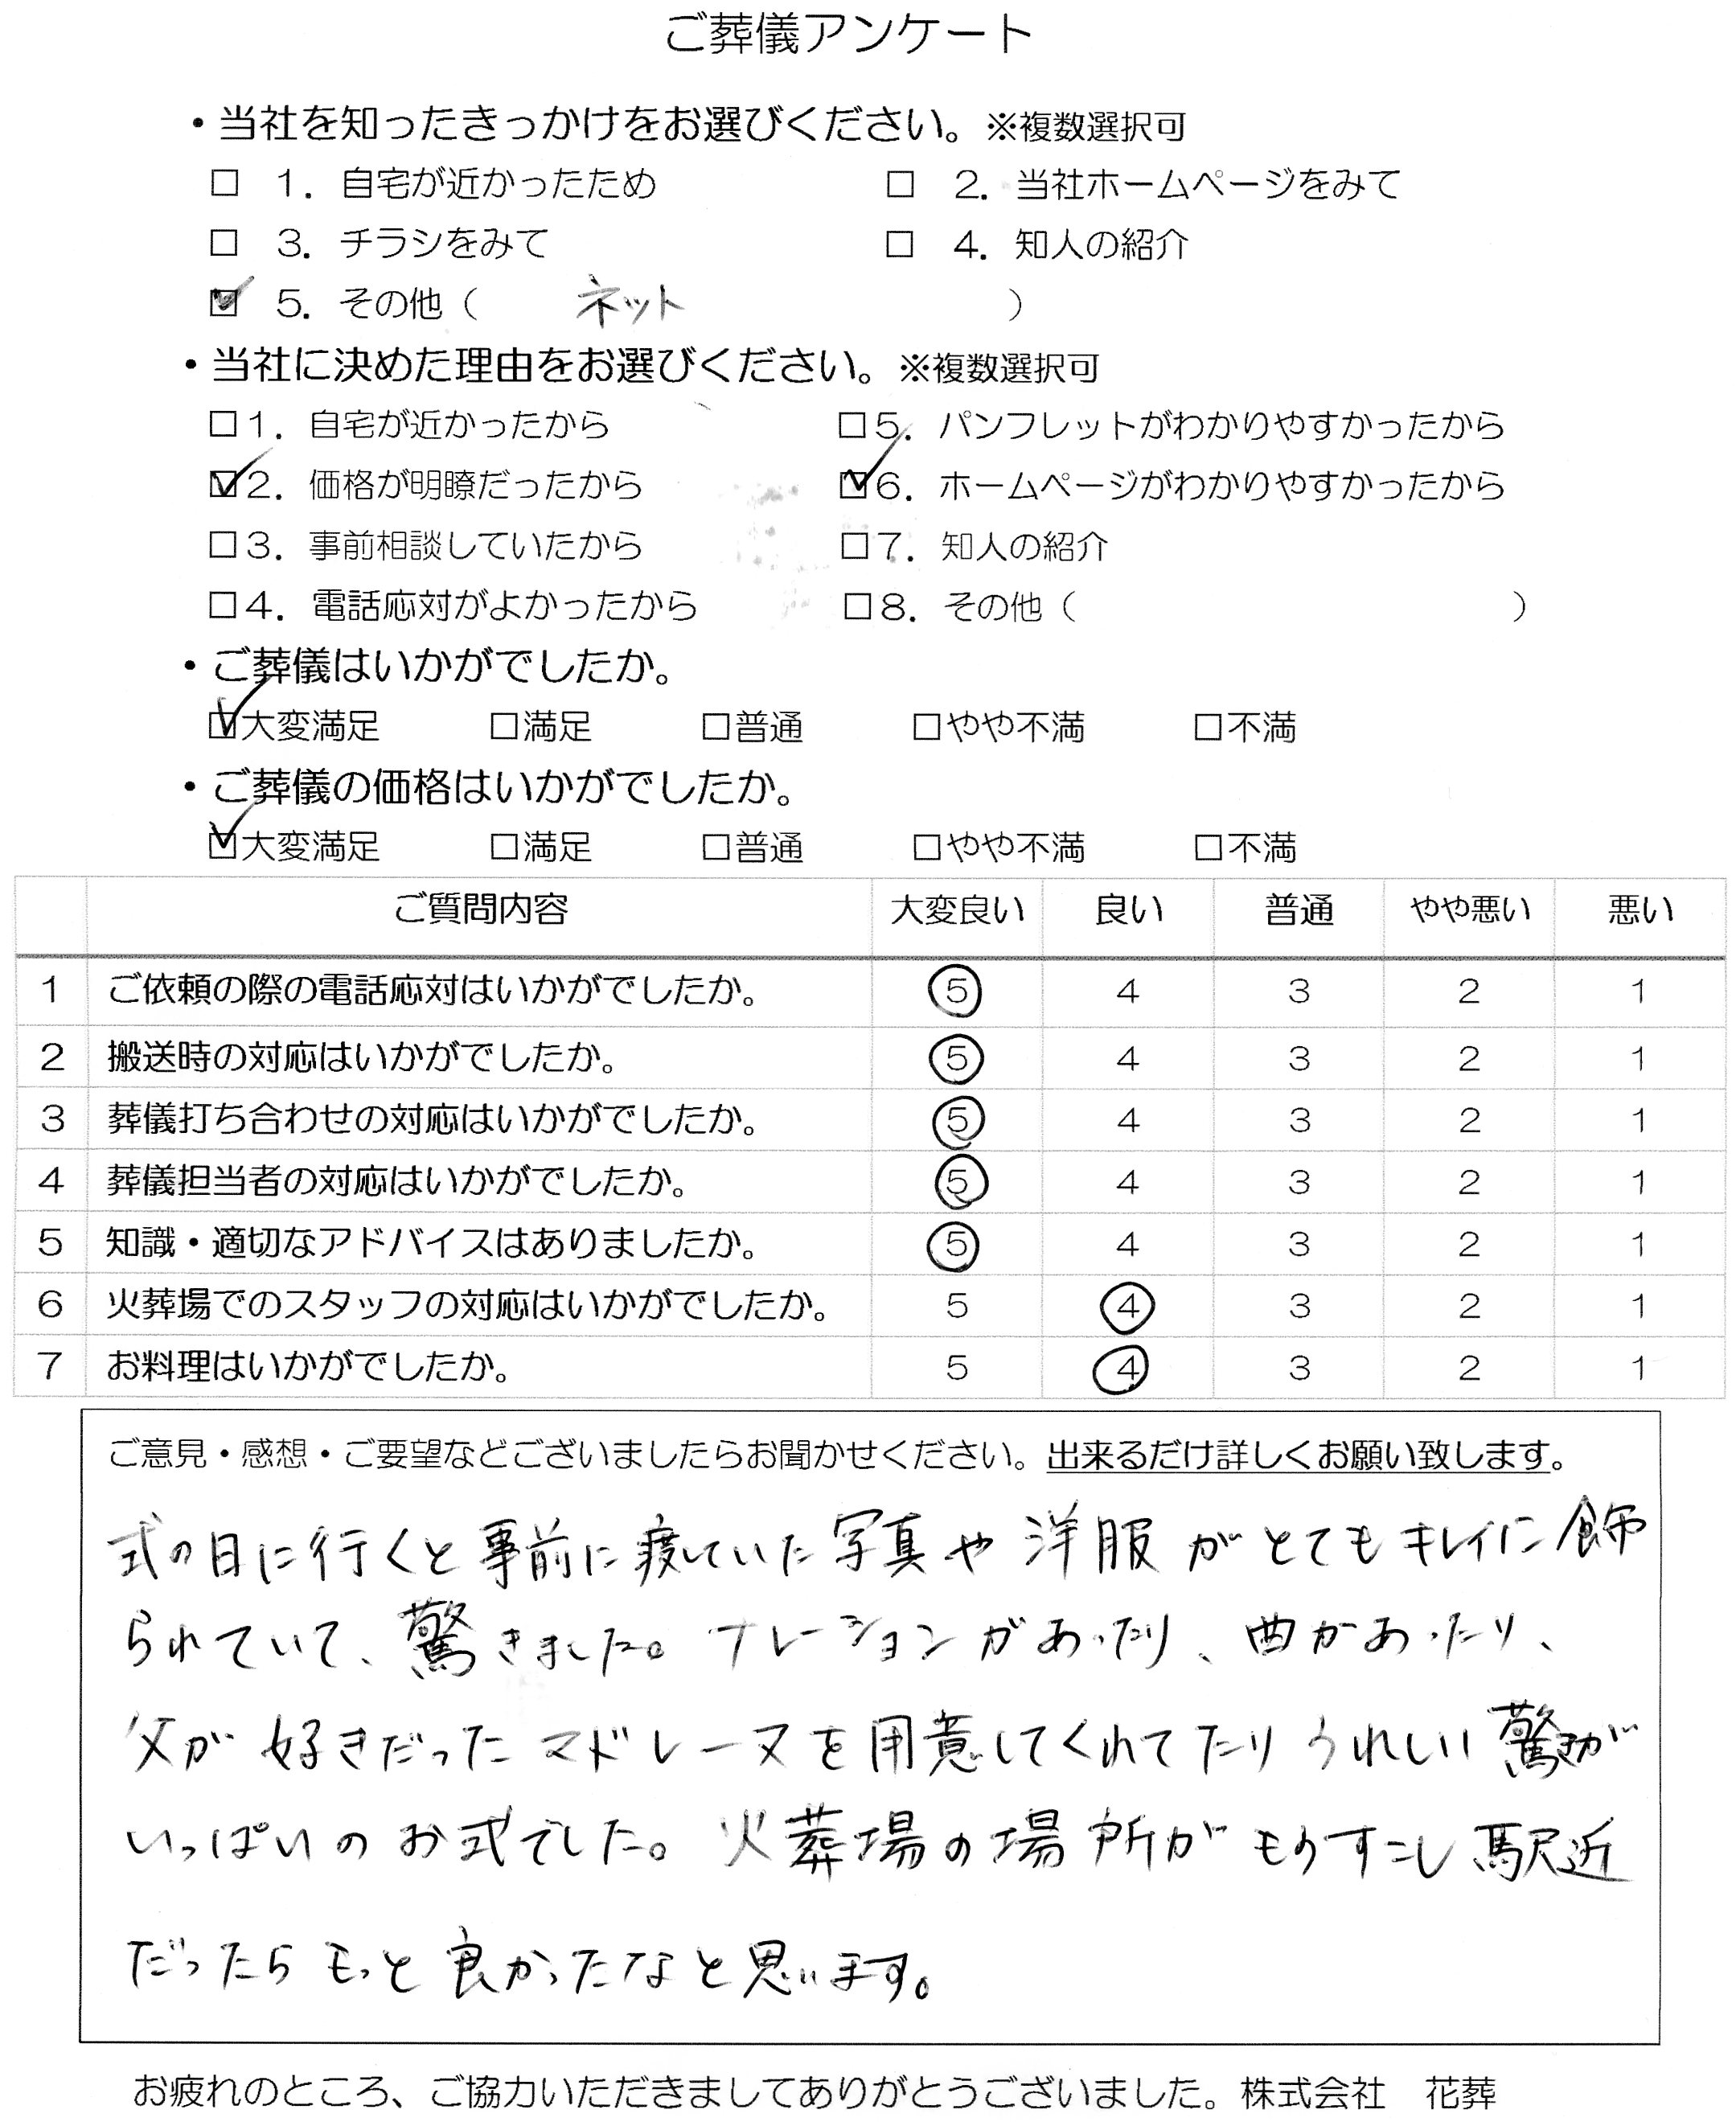 ご葬儀アンケート
・当社を知ったきっかけをお選びください。※複数選択可
□ 1. 自宅が近かったため □ 2. 当社ホームページをみて
□ 3. チラシをみて □ 4. 知人の紹介
☑ 5. その他（ ネット ）
・当社に決めた理由をお選びください。※複数選択可
□1. 自宅が近かったから □5. パンフレットがわかりやすかったから
☑2. 価格が明瞭だったから ☑6. ホームページがわかりやすかったから
□3. 事前相談していたから □7. 知人の紹介
□4. 電話応対がよかったから □8. その他（ ）
・ご葬儀はいかがでしたか。
☑大変満足 □満足 □普通 □やや不満 □不満
・ご葬儀の価格はいかがでしたか。
☑大変満足 □満足 □普通 □やや不満 □不満
ご質問内容 大変良い 良い 普通 やや悪い 悪い
1 ご依頼の際の電話応対はいかがでしたか。 5 4 3 2 1
2 搬送時の対応はいかがでしたか。 5 4 3 2 1
3 葬儀打ち合わせの対応はいかがでしたか。 5 4 3 2 1
4 葬儀担当者の対応はいかがでしたか。 5 4 3 2 1
5 知識・適切なアドバイスはありましたか。 5 4 3 2 1
6 火葬場でのスタッフの対応はいかがでしたか。 5 4 3 2 1
7 お料理はいかがでしたか。 5 4 3 2 1
ご意見・感想・ご要望などございましたらお聞かせください。出来るだけ詳しくお願い致します。
式の日に行くと事前に渡していた写真や洋服がとてもキレイに飾
られていて、驚きました。ナレーションがあったり、曲があったり、
父が好きだったマドレーヌを用意してくれてたりうれしい驚きが
いっぱいのお式でした。火葬場の場所がもうすこし駅近
だったらもっと良かったなと思います。
お疲れのところ、ご協力いただきましてありがとうございました。株式会社 花葬